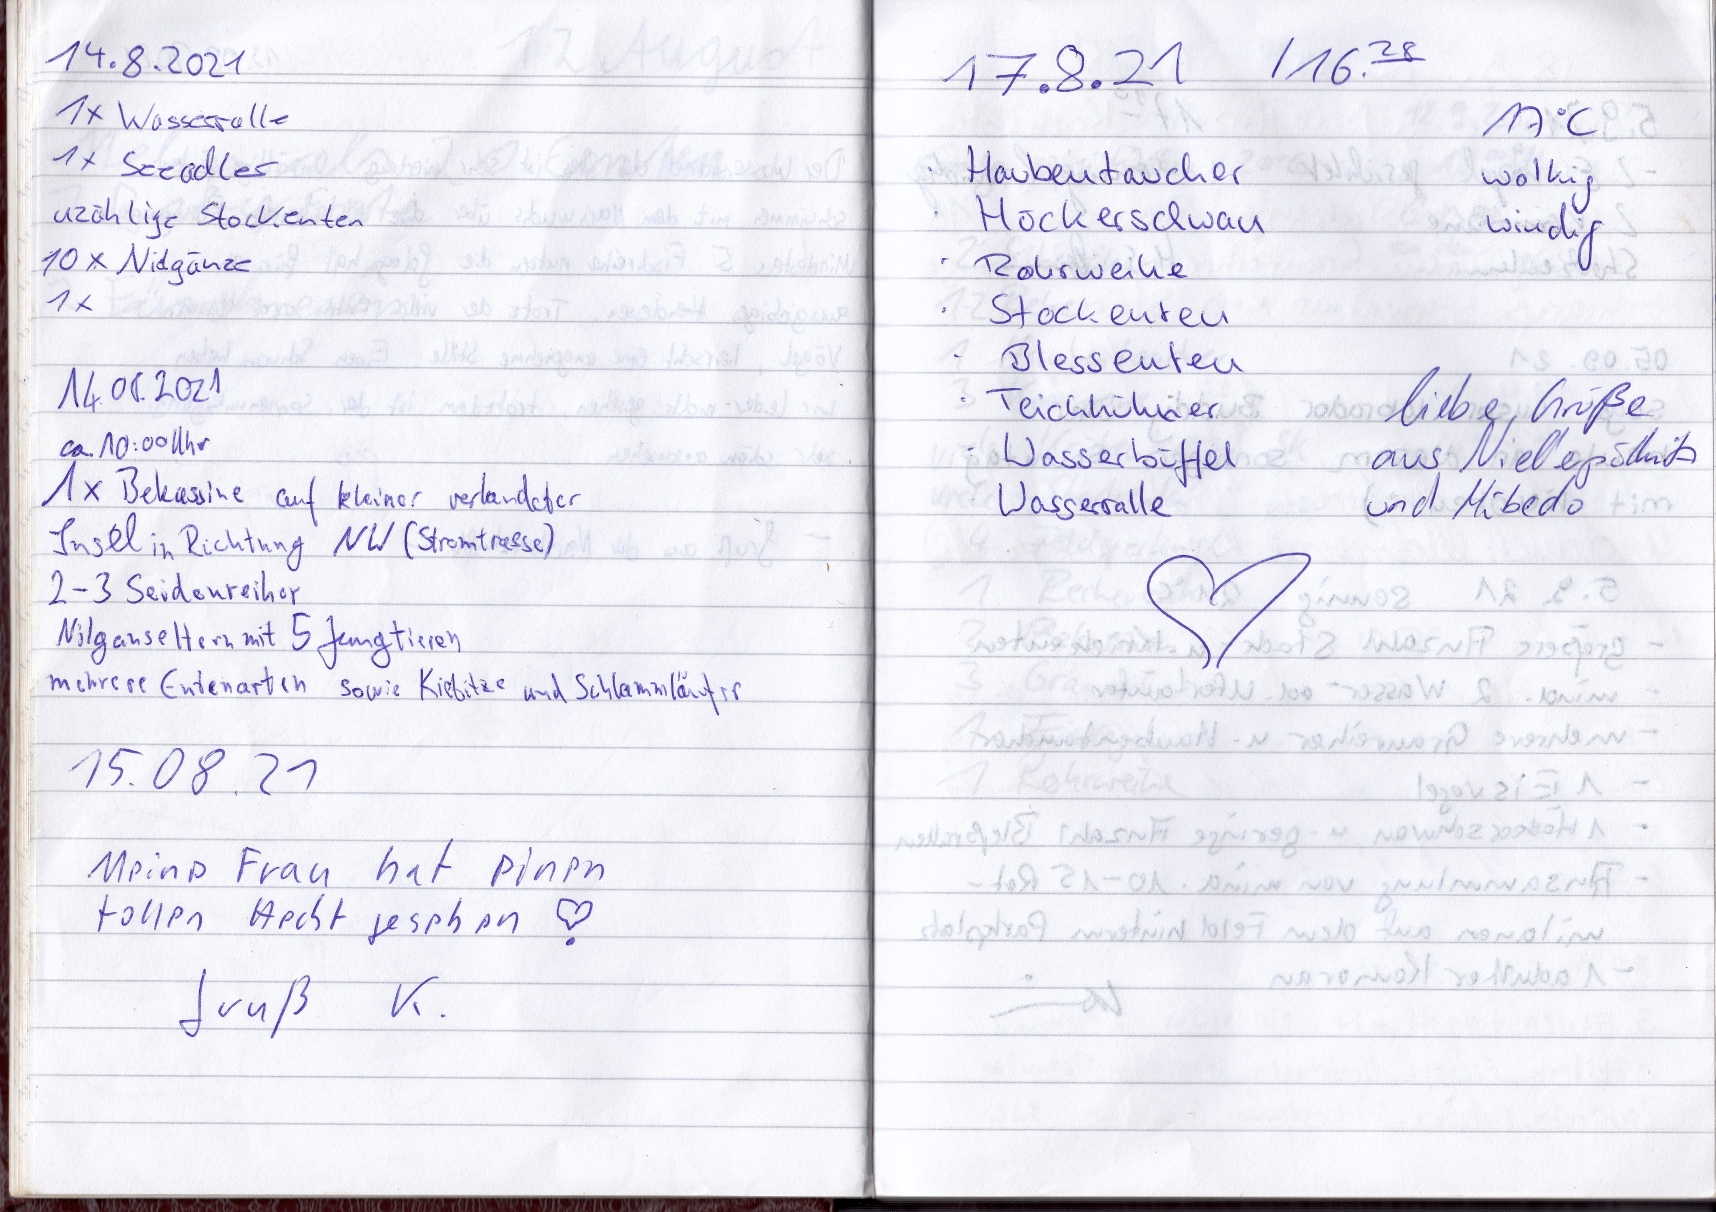 14.8.2021
1x Wasserralle
1x Seeadler
uzählige Stockenten
10 x Nilgänse
1x
14.08.2021
ca. 10:00 Uhr
1x Bekassine auf kleiner verlandeter
Insel in Richtung NW (Stromtrasse)
2-3 Seidenreiher
Nilganseltern mit 5 Jungtieren
mehrere Entenarten sowie Kiebitze und Schlammläufer
15.08.21
Meine Frau hat einen
tollen Hecht gesehen
Gruß K.
17.8.21 /16.28
17°C
· Haubentaucher wolkig
· Höckerschwan windig
· Rohrweihe
· Stockenten
· Blessenten
· Teichhühner liebe Grüße
· Wasserbüffel aus
· Wasserralle und